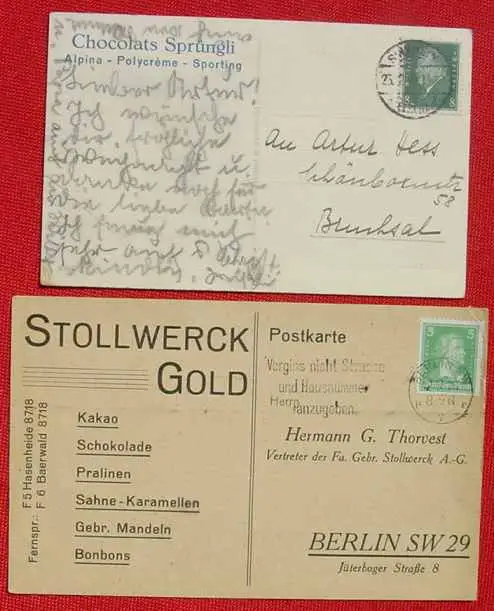 Chocolats Sprüngli
Alpina - Polycrème - Sporting
Lieber Artur!
Ich wünsche
dir fröhliche
Weihnacht u.
danke noch für
die liebe Karte.
Ich freue mich
sehr auf
An Artur Hess
Schönbornstr
58
Bruchsal
STOLLWERCK
GOLD
Kakao
Schokolade
Pralinen
Sahne-Karamellen
Gebr. Mandeln
Bonbons
Fernspr.: F 5 Hasenheide 8718
F 6 Baerwald 8718
Postkarte
5 5
Vergiss nicht Strasse
und Hausnummer
anzugeben.
Herrn
Hermann G. Thorvest
Vertreter des Fa. Gebr. Stollwerck A.-G.
BERLIN SW 29
Jüterboger Straße 8